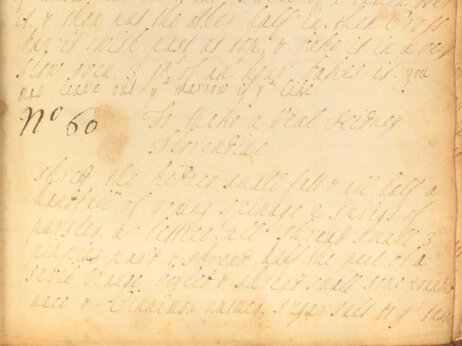 it, & then put the other half in, then Cross
bar it with past at top, & bake it in a very
slow oven, 3 qrs of an hour bakes it. you
may leave out ye marrow if yu like
No 60 To Make a Veal Kidney
Florendine
shred the kidney small fatt & all half a
handfull of young spinage 2 sprigs of
parsley, a lettice, all shread small, 3
pipins pard & shread half the peel of a
sivil orange boyled & shread small some
mace & Cinnamon nutmeg, sugar salt